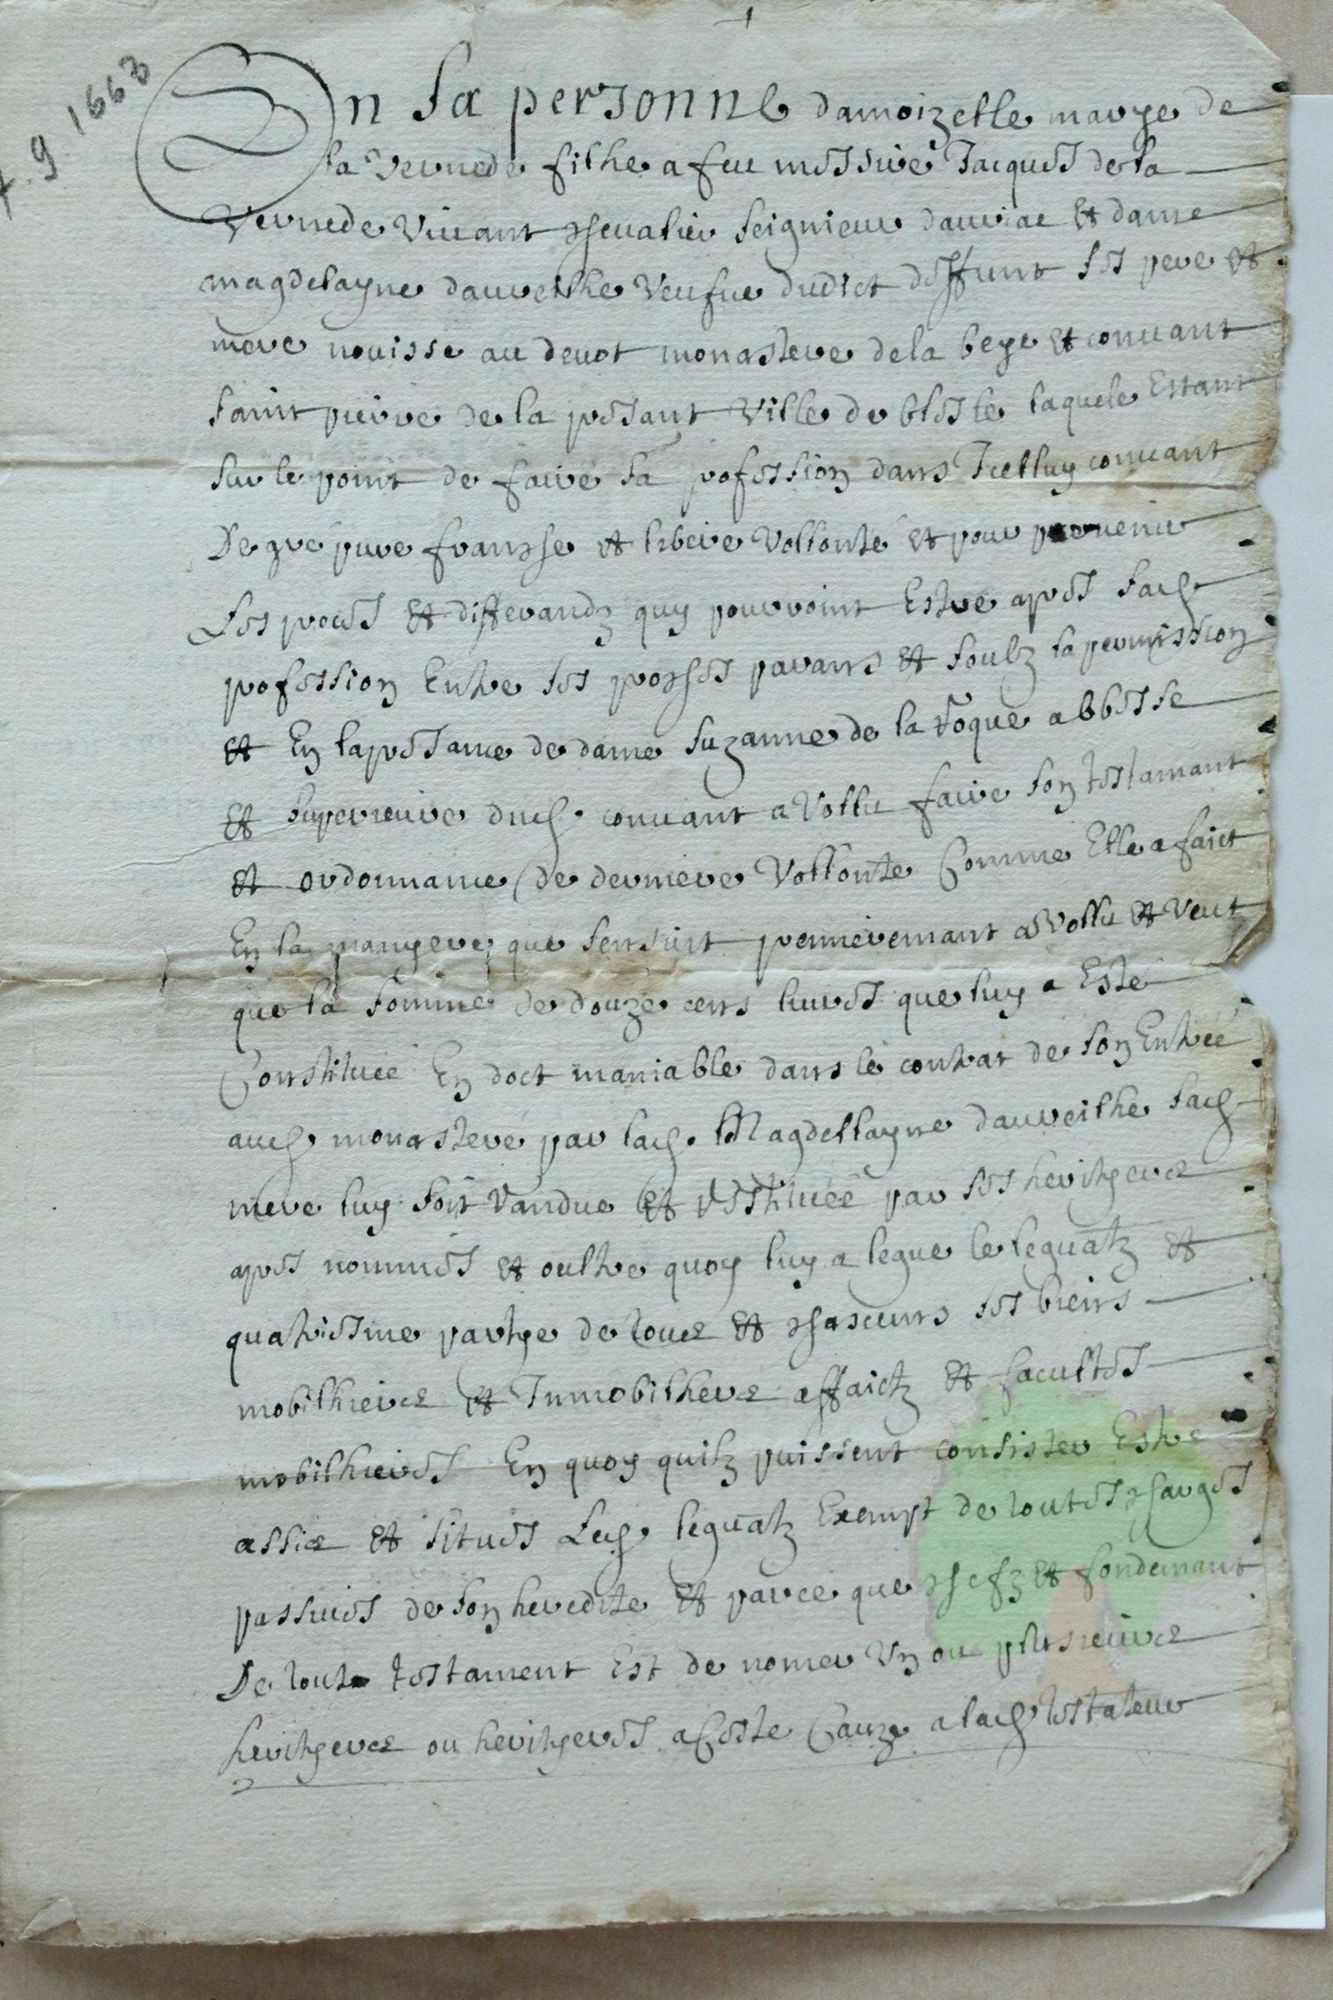 7. 9. 1663
En sa personne damoizelle marye de
la Vernede filhe a feu messire Jacques de la
Vernede Vivant chevalier seignieur dauriac et dame
magdelayne daureilhe Veufve dudict deffunt ses pere et
mere novisse au devot monastere de la beye et convant
saint pierre de la presant Ville de blesle laquele Estant
sur le point de faire sa profession dans Icelluy convant
De gré pure franche et libere Vollonté et pour prevenir
Les proces et differandz quy pourroint Estre apres sad
profession Entre ses proches parans et soubz la permission
et En la presance de dame suzanne de la Roque abbesse
et superieure dud convant a Vollu faire son testamant
et ordonnance de derniere Vollonte Comme Elle a faict
En la manyere que sensuit premierement a Vollu et Veut
que la somme de douze cens livres que luy a Esté
Constituée En doct maniable dans le contrat de son Entrée
aud monastere par lad. Magdellayne daureilhe sad
mere luy soit Randue et restituée par ses heritiere
apres nommes et oultre quoy luy a legue le leguatz et
quatriesme partye de tous et chascuns ses biens
mobilhiers et Inmobilhers affaictz et facultes
mobilhieres En quoy quilz puissent consister Estre
assis et situes Led leguatz Exempt de toutes charges
passives de son heredite et parce que chefz et fondemant
De tout testament Est de nomer Un ou plusieurs
heritiers ou heritieres a Ceste Cauze a lad testateur